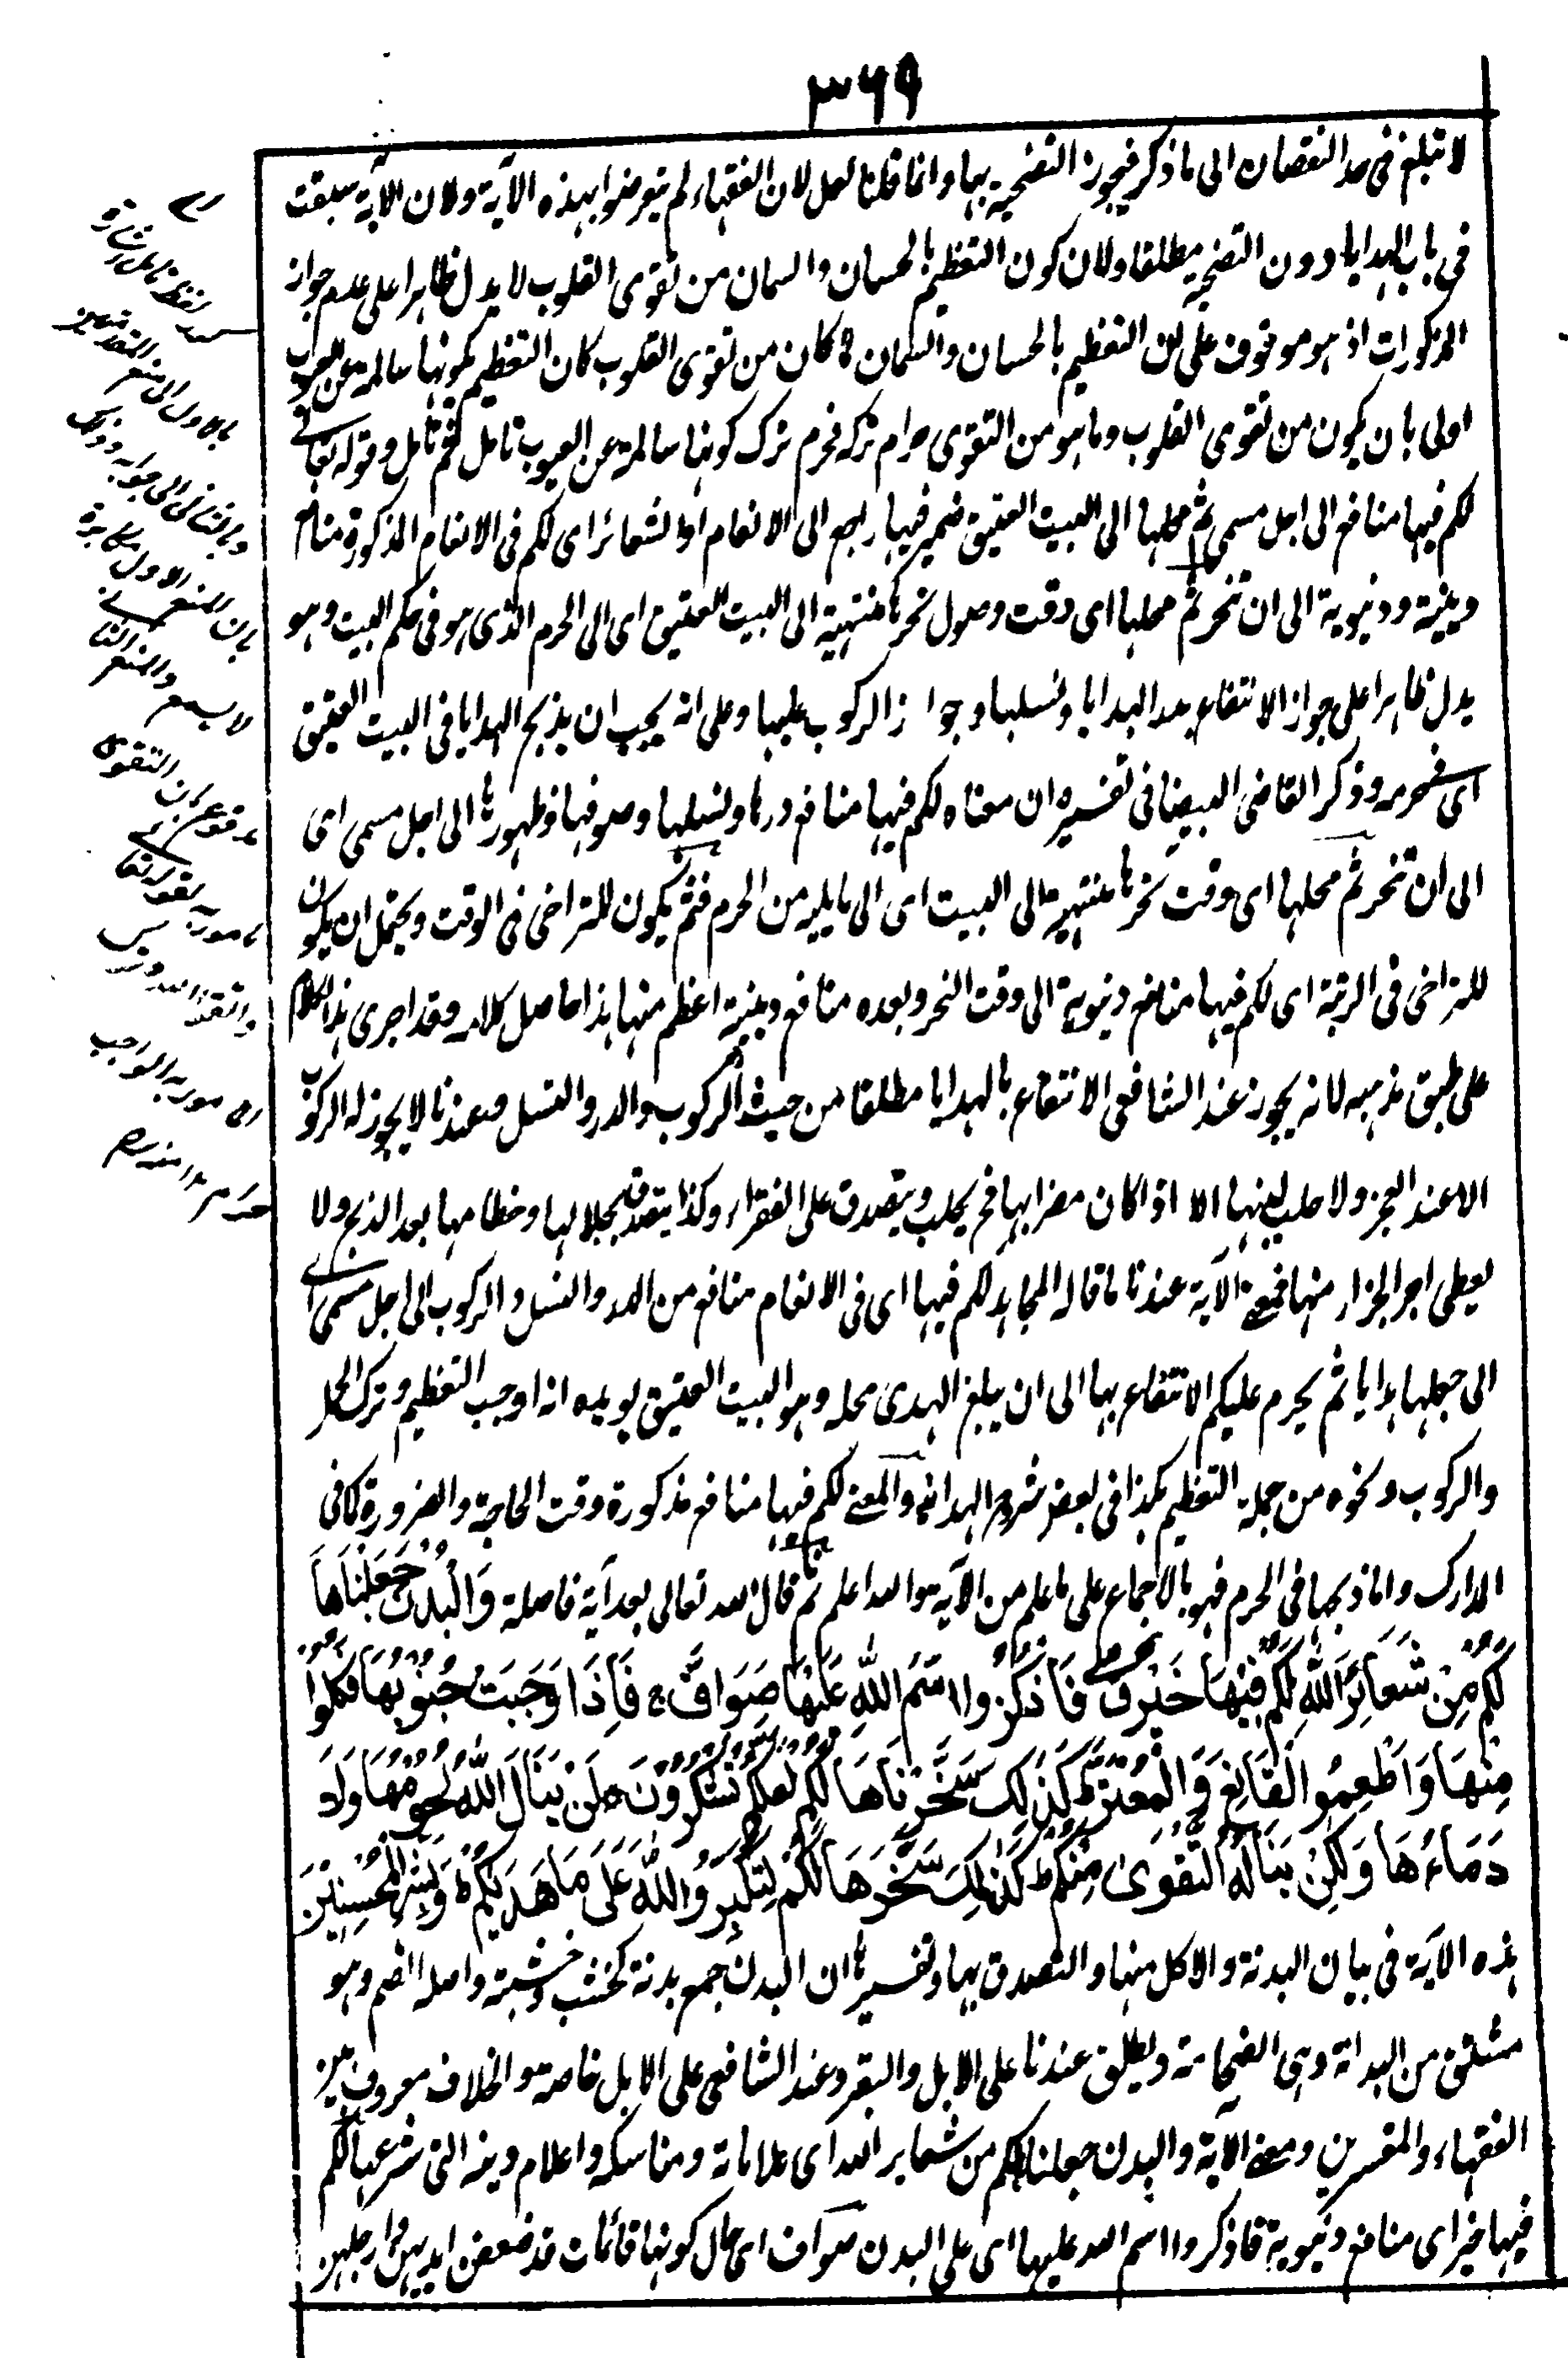 ٣٦٩
لا تبلغ فى حد النقصان الى ما ذكر فيجوز التضحية بها وانما قلنا لعل لان الفقهاء لم يتعرضوا بهذه الآية ولان الآية سبقت
فى باب الهدايا دون التضحية مطلقا ولان كون التعظيم بالحسان والسمان من تقوى القلوب لا يدل ظاهرا على عدم جواز
المذكورات اذ هو موقوف على ان التعظيم بالحسان والسمان لما كان من تقوى القلوب كان التعظيم بكونها سالمة عن العيوب
اولى بان يكون من تقوى القلوب وما هو من التقوى حرام تركه فحرم ترك كونها سالمة عن العيوب تامل ثم تامل وقوله تعالى
لكم فيها منافع الى اجل مسمى ثم محلها الى البيت العتيق ضمير فيها راجع الى الانعام او الشعائر اى لكم فى الانعام المذكورة منافع
دينية ودنيوية الى ان تنحر ثم محلها اى وقت وصول نحرها منتهية الى البيت العتيق اى الى الحرم الذى هو فى حكم البيت وهو
يدل ظاهرا على جواز الانتفاع بدر الهدايا ونسلها وجواز الركوب عليها وعلى انه يجب ان يذبح الهدايا فى البيت العتيق
اى فى حرمه وذكر القاضى البيضاوى فى تفسيره ان معناه لكم فيها منافع درها ونسلها وصوفها وظهورها الى اجل مسمى اى
الى ان تنحر ثم محلها اى وقت نحرها منتهية الى البيت اى الى ما يليه من الحرم فثم يكون للتراخى فى الوقت ويحتمل ان يكون
للتراخى فى الرتبة اى لكم فيها منافع دنيوية الى وقت النحر وبعده منافع دينية اعظم منها هذا حاصل كلامه وقد اجرى هذا الكلام
على طبق مذهبه لانه يجوز عند الشافعى الانتفاع بالهدايا مطلقا من حيث الركوب والدر والنسل وعندنا لا يجوز له الركوب
الا عند العجز ولا حلب لبنها الا اذا كان مضرا بها فح يحلب ويتصدق على الفقراء وكذا يتصدق بجلالها وخطامها بعد الذبح ولا
يعطى اجر الجزار منها فمعنى الآية عندنا ما قاله المجاهد لكم فيها اى فى الانعام منافع من الدر والنسل والركوب الى اجل مسمى اى
الى جعلها هدايا ثم يحرم عليكم الانتفاع بها الى ان يبلغ الهدى محله وهو البيت العتيق يويده انه اوجب التعظيم وترك الحلب
والركوب ونحوه من جملة التعظيم هكذا فى بعض شروح الهداية والمعنى لكم فيها منافع مذكورة وقت الحاجة والضرورة كما فى
المدارك واما ذبحها فى الحرم فهو بالاجماع على ما علم من الآية والله اعلم ثم قال الله تعالى بعد آية فاصلة وَالْبُدْنَ جَعَلْنَاهَا
لَكُمْ مِّنْ شَعَائِرِ اللّٰهِ لَكُمْ فِيْهَا خَيْرٌ فَاذْكُرُوا اسْمَ اللّٰهِ عَلَيْهَا صَوَافَّ فَاِذَا وَجَبَتْ جُنُوْبُهَا فَكُلُوْا
مِنْهَا وَاَطْعِمُوا الْقَانِعَ وَالْمُعْتَرَّ كَذٰلِكَ سَخَّرْنَاهَا لَكُمْ لَعَلَّكُمْ تَشْكُرُوْنَ لَنْ يَّنَالَ اللّٰهَ لُحُوْمُهَا وَلَا
دِمَاءُهَا وَلٰكِنْ يَّنَالُهُ التَّقْوٰى مِنْكُمْ كَذٰلِكَ سَخَّرَهَا لَكُمْ لِتُكَبِّرُوا اللّٰهَ عَلٰى مَا هَدٰىكُمْ وَبَشِّرِ الْمُحْسِنِيْنَ
هذه الآية فى بيان البدنة والاكل منها والتصدق بها وتفسيرها ان البدن جمع بدنة كخشب وخشبة واصله الضم وهو
مشتق من البدانة وهى الضخامة ويطلق عندنا على الابل والبقر وعند الشافعى على الابل خاصة والخلاف معروف بين
الفقهاء والمفسرين ومعنى الآية والبدن جعلناها لكم من شعاير الله اى علاماته ومناسكه واعلام دينه التى شرعها لكم
فيها خير اى منافع دنيوية فاذكروا اسم الله عليها اى على البدن صواف اى حال كونها قائمات قد صففن ايديهن وارجلهن
لفظ تامل اشارة
بالاول الى منع التقدمتين
وبالثانى الى جوابه وذلك
بان المنع الاول مكابرة
لا يسمع والمنع الثانى
مدفوع بان التقوى
مامور به لقوله تعالى
واتقوا الله وترك
المامور به الواجب
حرام منه رح